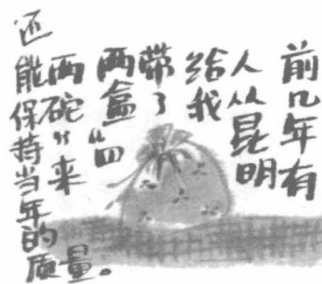 前几年有
人从昆明
给我
带了
两盒“四
两砣”来
还能保持当年的质量。